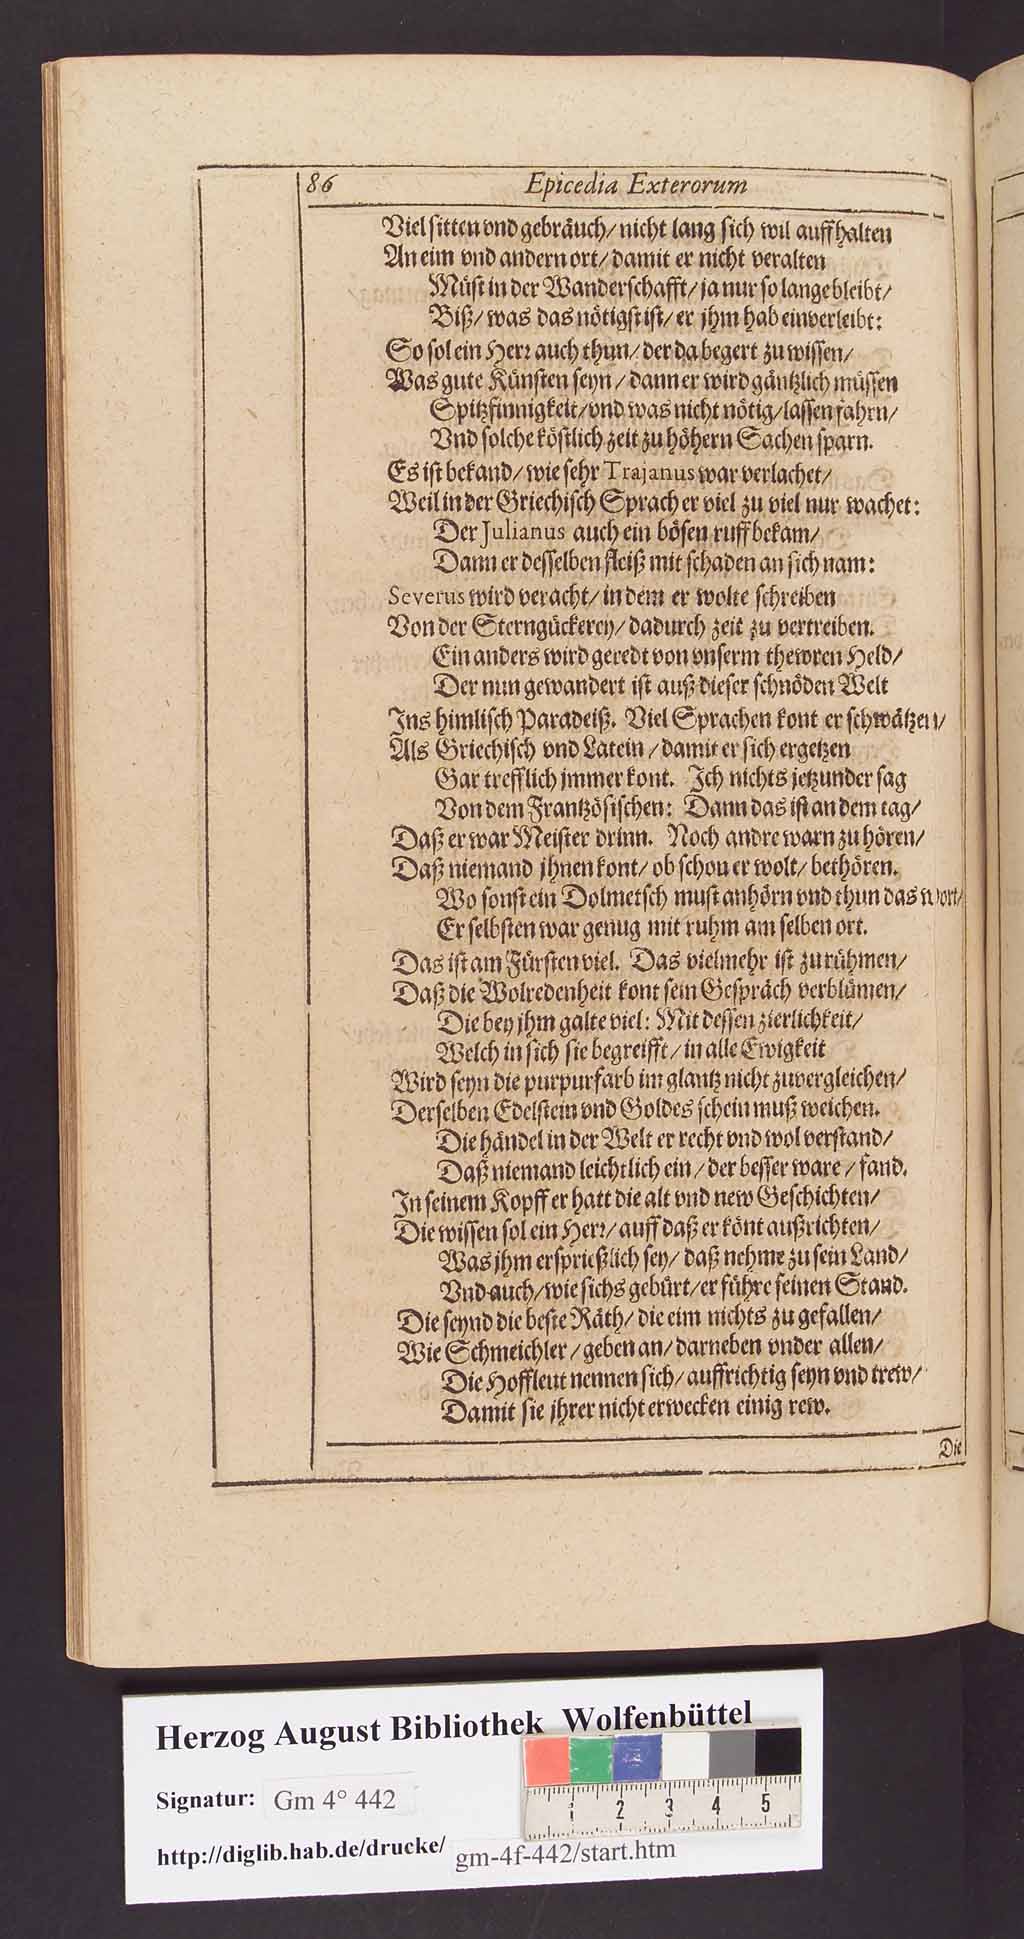 86 Epicedia Exterorum
Viel sitten vnd gebräuch/ nicht lang sich wil auffhalten
An eim vnd andern ort/ damit er nicht veralten
Müst in der Wanderschafft/ ja nur so lange bleibt/
Biß/ was das nötigst ist/ er jhm hab einverleibt:
So sol ein Herr auch thun/ der da begert zu wissen/
Was gute Künsten seyn/ dann er wird gäntzlich müssen
Spitzfinnigkeit/ vnd was nicht nötig/ lassen fahrn/
Vnd solche köstlich zeit zu höhern Sachen sparn.
Es ist bekand/ wie sehr Trajanus war verlachet/
Weil in der Griechisch Sprach er viel zu viel nur wachet:
Der Julianus auch ein bösen ruff bekam/
Dann er desselben fleiß mit schaden an sich nam:
Severus wird veracht/ in dem er wolte schreiben
Von der Sterngückerey/ dadurch zeit zu vertreiben.
Ein anders wird geredt von vnserm thewren Held/
Der nun gewandert ist auß dieser schnöden Welt
Ins himlisch Paradeiß. Viel Sprachen kont er schwätzen/
Als Griechisch vnd Latein/ damit er sich ergetzen
Gar trefflich jmmer kont. Ich nichts jetzunder sag
Von dem Frantzösischen: Dann das ist an dem tag/
Daß er war Meister drinn. Noch andre warn zu hören/
Daß niemand jhnen kont/ ob schon er wolt/ bethören.
Wo sonst ein Dolmetsch must anhörn vnd thun das wort/
Er selbsten war genug mit ruhm am selben ort.
Das ist am Fürsten viel. Das vielmehr ist zu rühmen/
Daß die Wolredenheit kont sein Gespräch verblümen/
Die bey jhm galte viel: Mit dessen zierlichkeit/
Welch in sich sie begreifft/ in alle Ewigkeit
Wird seyn die purpurfarb im glantz nicht zuvergleichen/
Derselben Edelstein vnd Goldes schein muß weichen.
Die händel in der Welt er recht vnd wol verstand/
Daß niemand leichtlich ein/ der besser ware/ fand.
In seinem Kopff er hatt die alt vnd new Geschichten/
Die wissen sol ein Herr/ auff daß er könt außrichten/
Was jhm ersprießlich sey/ daß nehme zu sein Land/
Vnd auch/ wie sichs gebürt/ er führe seinen Stand.
Die seynd die beste Räth/ die eim nichts zu gefallen/
Wie Schmeichler/ geben an/ darneben vnder allen/
Die Hoffleut nennen sich/ auffrichtig seyn vnd trew/
Damit sie jhrer nicht erwecken einig rew.
Die
Herzog August Bibliothek Wolfenbüttel
Signatur: Gm 4° 442
http://diglib.hab.de/drucke/ gm-4f-442/start.htm
1 2 3 4 5